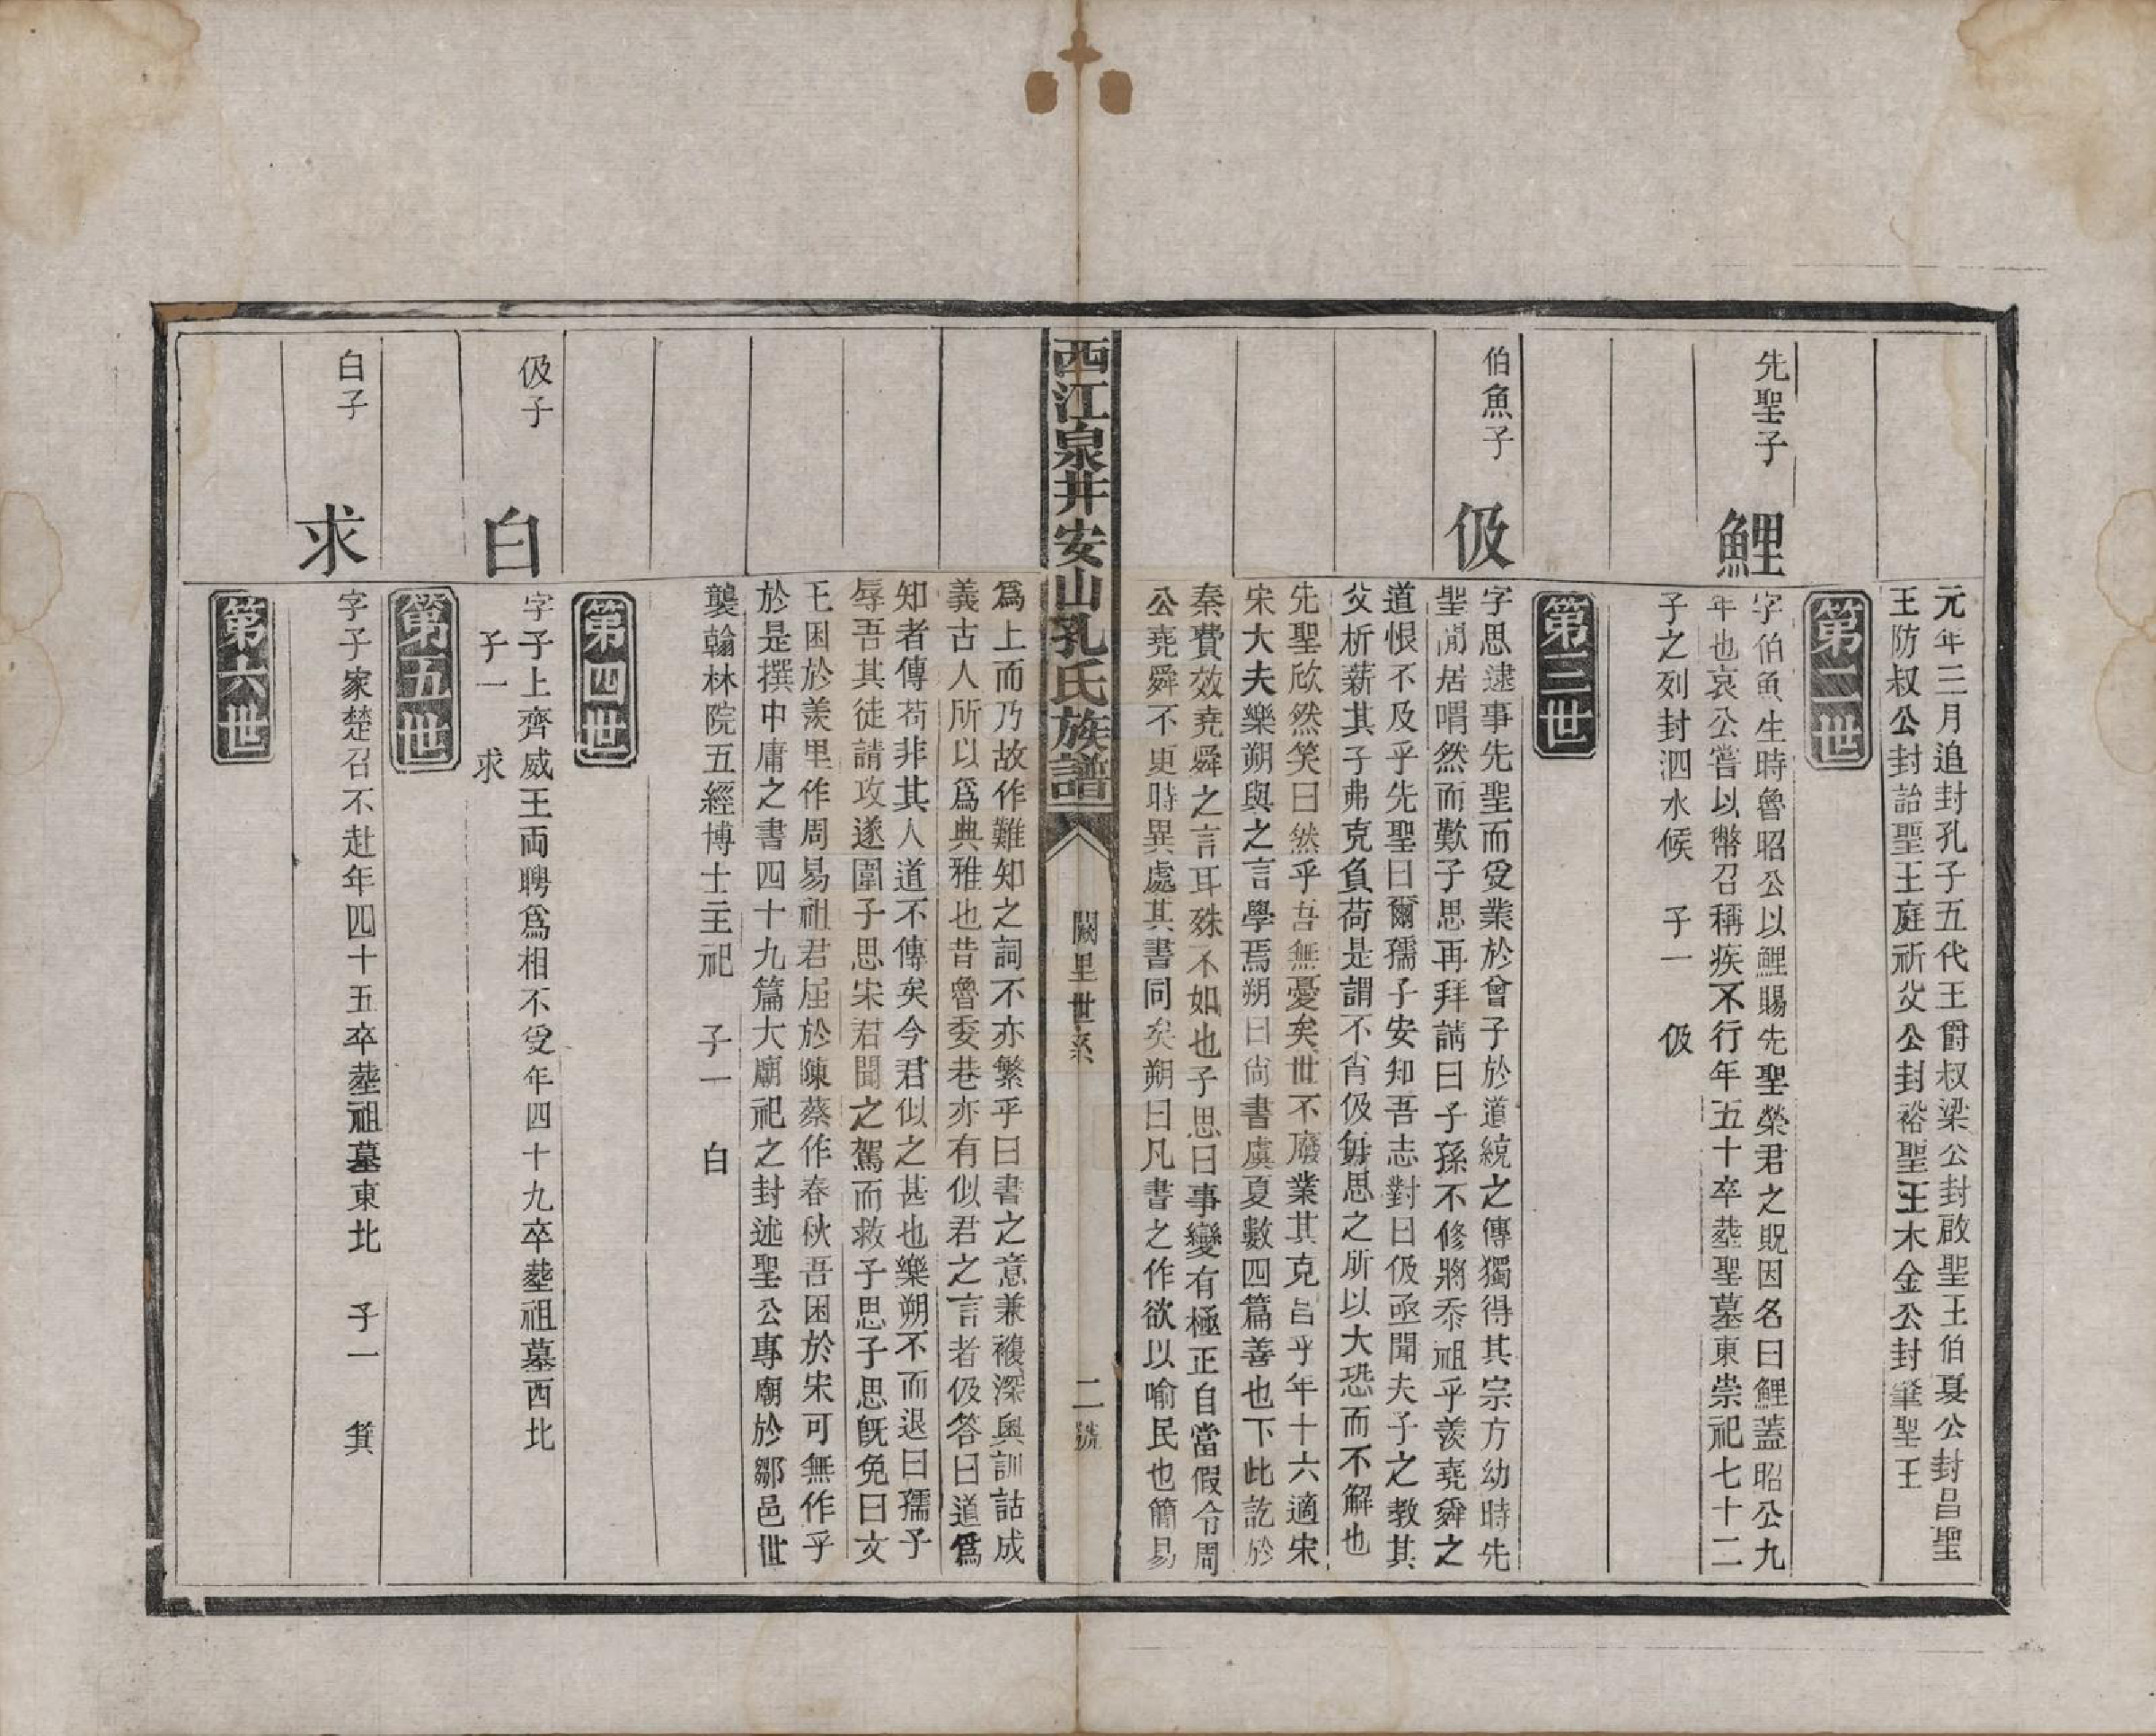 元年三月追封孔子五代王爵叔梁公封啟聖王伯夏公封昌聖
王防叔公封詒聖王庭祈父公封裕聖王木金公封肇聖王
第二世
先聖子
鯉
字伯魚生時魯昭公以鯉賜先聖榮君之貺因名曰鯉蓋昭公九
年也哀公嘗以幣召稱疾不行年五十卒塟聖墓東崇祀七十二
子之列封泗水候　子一　伋
第三世
伯魚子
伋
字思逮事先聖而受業於曾子於道統之傳獨得其宗方幼時先
聖閒居喟然而歎子思再拜請曰子孫不修將忝祖乎羨堯舜之
道恨不及乎先聖曰爾孺子安知吾志對曰伋亟聞夫子之教其
父析薪其子弗克負荷是謂不肖伋每思之所以大恐而不解也
先聖欣然笑曰然乎吾無憂矣世不廢業其克昌乎年十六適宋
宋大夫樂朔與之言學焉朔曰尚書虞夏數四篇善也下此訖於
秦費效堯舜之言耳殊不如也子思曰事變有極正自當假令周
公堯舜不更時異處其書同矣朔曰凡書之作欲以喻民也簡易
西江泉井安山孔氏族譜
闕里世系
二號
爲上而乃故作難知之詞不亦繁乎曰書之意兼複深奧訓詁成
義古人所以爲典雅也昔魯委巷亦有似君之言者伋答曰道爲
知者傳苟非其人道不傳矣今君似之甚也樂朔不而退曰孺子
辱吾其徒請攻遂圍子思宋君聞之駕而救子思子思既免曰文
王困於羑里作周易祖君屈於陳蔡作春秋吾困於宋可無作乎
於是撰中庸之書四十九篇大廟祀之封述聖公專廟於鄒邑世
襲翰林院五經博士主祀　子一　白
第四世
伋子
白
字子上齊威王両聘爲相不受年四十九卒塟祖墓西北
子一　求
第五世
白子
求
字子家楚召不赴年四十五卒塟祖墓東北　子一　箕
第六世